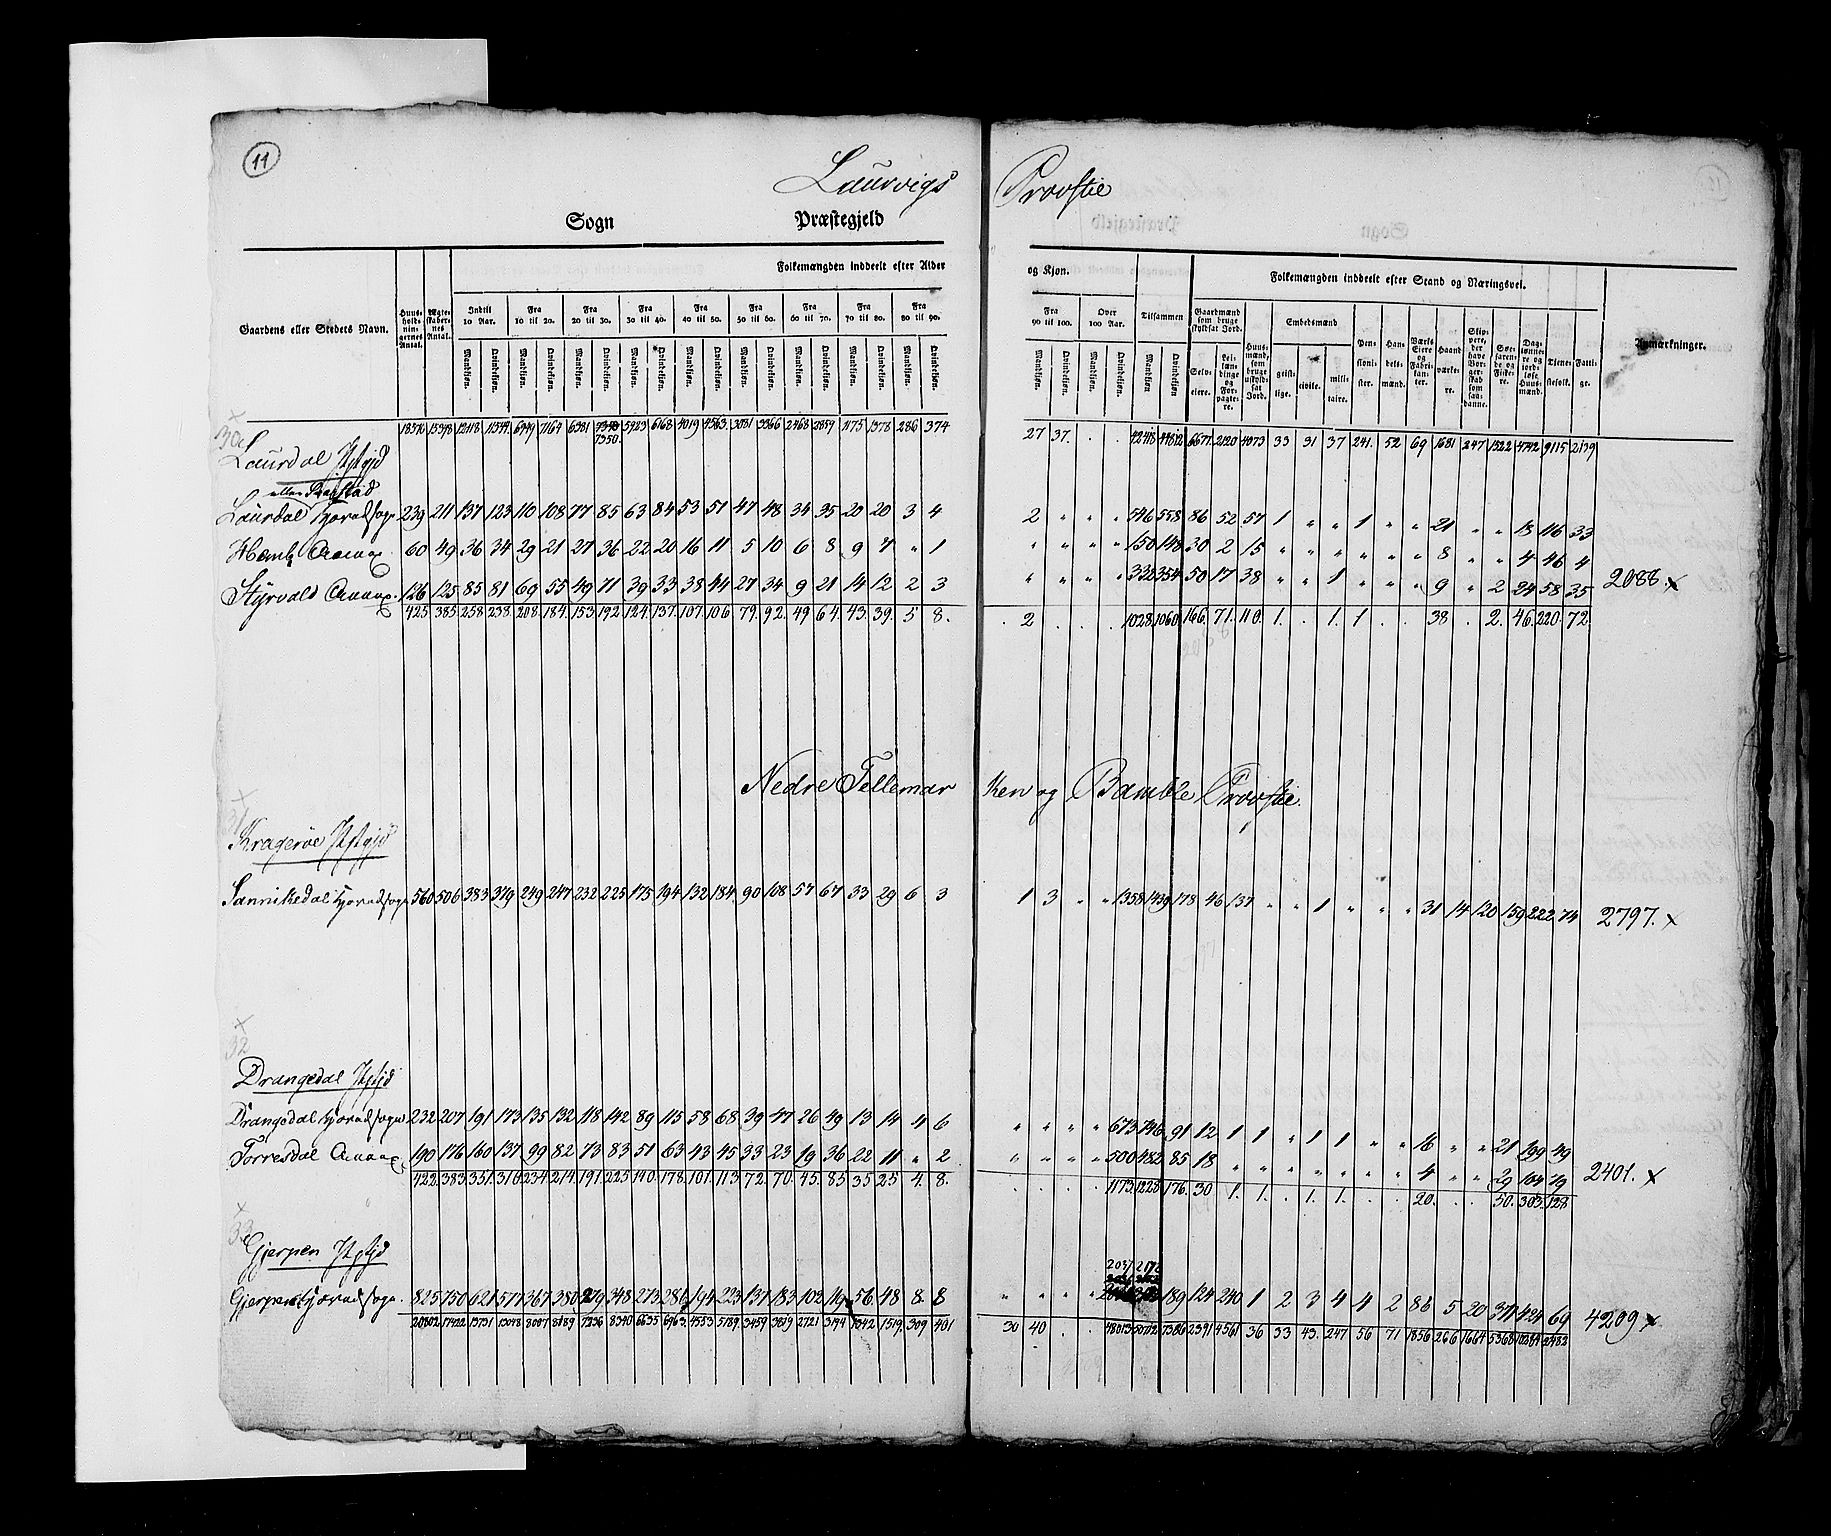 11
Laurvigs Provstie
Sogn Præstegjeld
Gaardens eller Stedets Navn. Huus-holdningernes Antal. Ægteskabernes Antal. Folkemængden inddeelt efter Alder og Kjøn. Tilsammen Folkemængden inddeelt efter Stand og Næringsvei. Anmærkninger.
Indtil 10 Aar. Fra 10 til 20. Fra 20 til 30. Fra 30 til 40. Fra 40 til 50. Fra 50 til 60. Fra 60 til 70. Fra 70 til 80. Fra 80 til 90. Fra 90 til 100. Over 100 Aar.
Mandkjøn. Qvindekjøn. Mandkjøn. Qvindekjøn. Mandkjøn. Qvindekjøn. Mandkjøn. Qvindekjøn. Mandkjøn. Qvindekjøn. Mandkjøn. Qvindekjøn. Mandkjøn. Qvindekjøn. Mandkjøn. Qvindekjøn. Mandkjøn. Qvindekjøn. Mandkjøn. Qvindekjøn. Mandkjøn. Qvindekjøn. Mandkjøn Qvindekjøn
Gaardmænd som bruge skyldsat Jord. Selveiere. Leilændinge og Forpagtere. Huusmænd, som bruge uskyldsat Jord. Embedsmænd geistlige. civile. militaire. Pensionister. Handelsmænd. Værks Eiere og Fabrikanter. Haandværkere. Skippere, der have Borgerskab som saadanne. Søefarende og Fiskere. Daglønnere og jordløse Huusmænd. Tienestefolk. Fattige.
13398 12118 11544 6949 7164 6381 7350. 5923 6168 4019 4563 3081 3366 2468 2859 1175 1378 286 374 27 37 . . 42418 44812 6677 2120 4073 33 31 37 241 52 69 1681 247 1322 4742 9115 2139
30
Laurdal Pstgjd
eller Barstad
Laurdal Hovedsogn 239 211 137 123 110 108 77 85 63 84 53 51 47 48 34 35 20 20 3 4 2 " " " 546 558 86 52 57 1 " " 1 " " 21 " " 18 116 33
Hæmb Annex 60 49 36 34 29 21 27 36 22 20 16 11 5 10 6 8 9 7 " 1 " " " " 150 148 30 2 15 " " " " " " 8 " " 4 46 4
Styrvold Annex 126 125 85 81 69 55 49 71 39 33 38 44 27 34 9 21 14 12 2 3 " " " " 332 354 50 17 38 " " 1 " " " 9 " 2 24 58 35 2088. x
425 385 258 238 208 184 153 192 124 137 107 106 79. 92. 49 64. 43. 39. 5 8. 2 . . . 1028 1060 166. 71. 110. 1. . 1. 1 . . 38 . 2. 46. 220. 72.
Nedre Tellemarken og Bamble Provstie.
31
Kragerøe Pstgjd
Sannikedal Hovedsogn 560 506 383 379 249 247 232 225 175 194 132 184 90 108 57 67 33 29 6 3 1 3 " " 1358 1439 178 46 137 " " 1 " " " 31 14 120 159 222 74 2797. x
32
Drangedal Pstgjd
Drangedal Hovedsogn 232 207 191 173 135 132 118 142 89 115 58 68 39 47 26 49 13 14 4 6 " " " " 673 746 91 12 1 1 " 1 1 " " 16 " " 21 199 49
Torresdal Annex 190 176 160 137 99 82 73 83 51 63 43 45 33 23 19 36 22 11 " 2 " " " " 500 482 85 18 " " " " " " " 4 " " 29 104 79 2401. x
422 383 351. 310 234 214. 191. 225 140. 178. 101. 113. 72. 70. 45. 85 35 25 4. 8. . . . . 1173. 1228 176. 30 1. 1. . 1. 1. . . 20. . . 50. 303. 128
33
Gjerpen Pstgjd
2037 2172
Gjerpen Hovedsogn. 825 750 621 577 367 380 279 348 273 284 194 223 137 183 103 119 56 48 8 8 " " " " 189 124 240 1 2 3 4 4 2 86 5 20 371 424 69 4209 x
13731 8007 8189 7236 8340 6635 6963 4553 5189 3459 3819 2721 3194 1342 1519 309 401 30 40 . . 48013 50712 7386 2391 4561 36 33 43. 247 56 71 1856 266 1664 5368 10284 2482